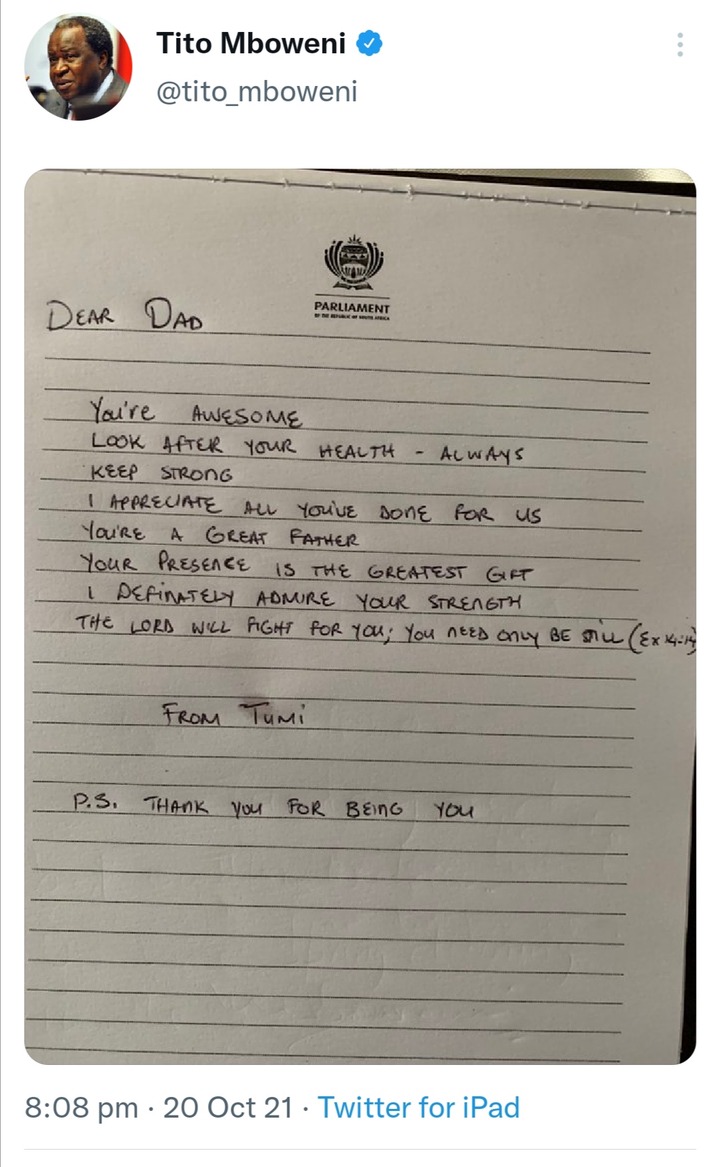 Tito Mboweni
@tito_mboweni
PARLIAMENT
OF THE REPUBLIC OF SOUTH AFRICA
DEAR DAD
You're AWESOME
LOOK AFTER YOUR HEALTH - ALWAYS
KEEP STRONG
I APPRECIATE ALL YOU'VE DONE FOR US
YOU'RE A GREAT FATHER
YOUR PRESENCE IS THE GREATEST GIFT
I DEFINATELY ADMIRE YOUR STRENGTH
THE LORD WILL FIGHT FOR YOU; YOU NEED ONLY BE STILL (Ex 14:14)
FROM TUMI
P.S. THANK YOU FOR BEING YOU
8:08 pm · 20 Oct 21 · Twitter for iPad